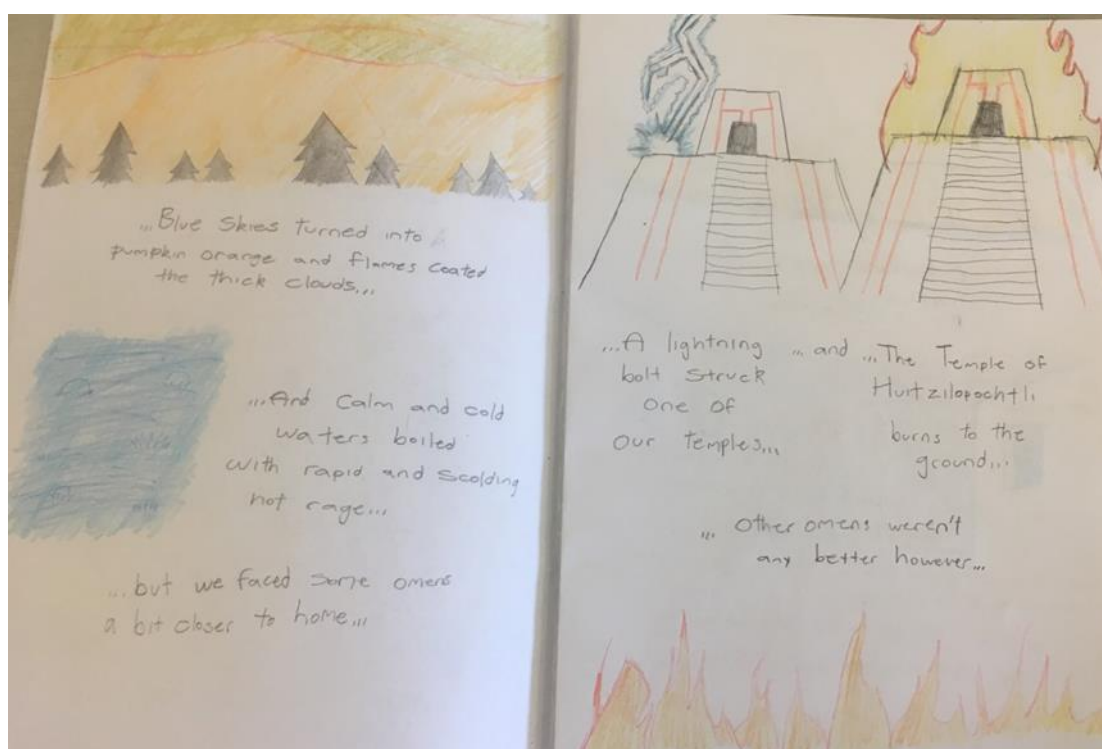 ...Blue Skies turned into
pumpkin orange and flames coated
the thick clouds...
...And Calm and cold
waters boiled
with rapid and scolding
hot rage...
...but we faced some omens
a bit closer to home...
...A lightning
bolt struck
one of
our temples...
... and
...The Temple of
Huitzilopochtli
burns to the
ground...
... Other omens weren't
any better however...